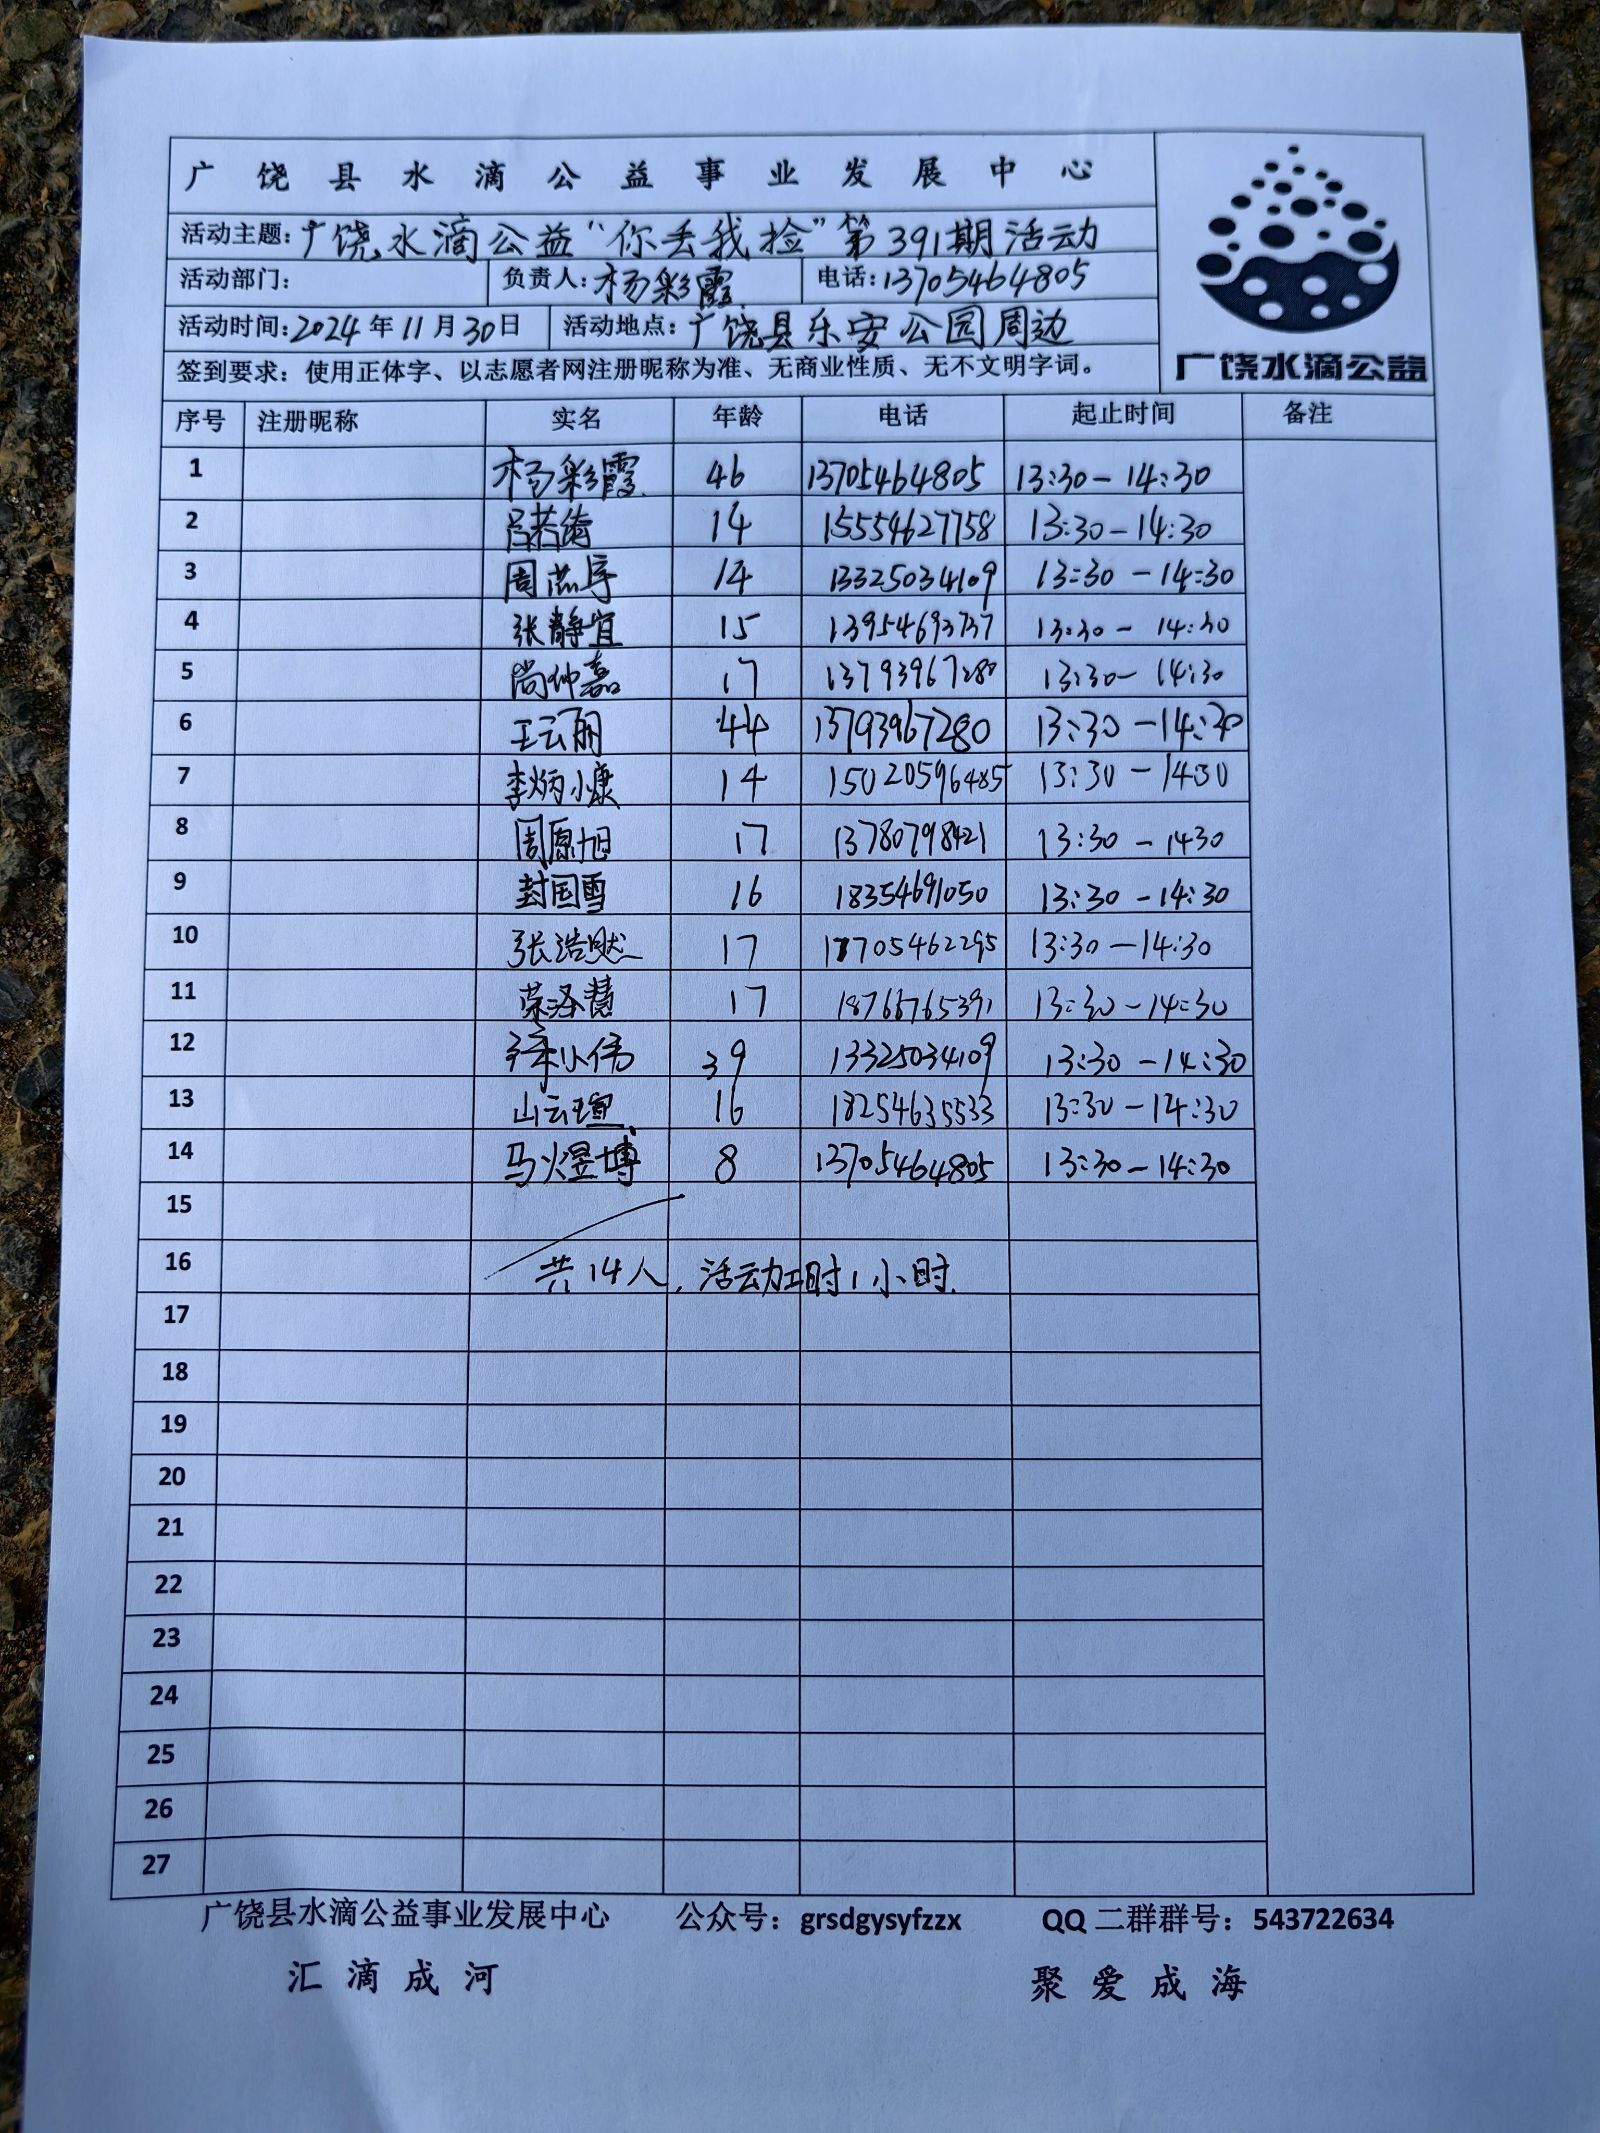 广饶县水滴公益事业发展中心
活动主题:广饶水滴公益“你丢我捡”第391期活动
活动部门: 负责人:杨彩霞 电话:13705464805
活动时间:2024年11月30日 活动地点:广饶县乐安公园周边
签到要求：使用正体字、以志愿者网注册昵称为准、无商业性质、无不文明字词。
广饶水滴公益
序号 注册昵称 实名 年龄 电话 起止时间 备注
1 杨彩霞 46 13705464805 13:30-14:30
2 吕若绮 14 15554627758 13:30-14:30
3 周 14 13325034109 13:30-14:30
4 张静宜 15 13954693737 13:30-14:30
5 尚仲嘉 17 13793967280 13:30-14:30
6 王云丽 44 13793967280 13:30-14:30
7 李炳小康 14 15020596485 13:30-1430
8 周原旭 17 13780798421 13:30-1430
9 封国雪 16 18354691050 13:30-14:30
10 张浩然 17 17705462295 13:30-14:30
11 荣泽慧 17 13:30-14:30
12 小伟 39 13325034109 13:30-14:30
13 山云瑄 16 18254635533 13:30-14:30
14 马煜博 8 13705464805 13:30-14:30
15
16 共14人,活动工时1小时.
17
18
19
20
21
22
23
24
25
26
27
广饶县水滴公益事业发展中心 公众号：grsdgysyfzzx QQ二群群号：543722634
汇滴成河 聚爱成海